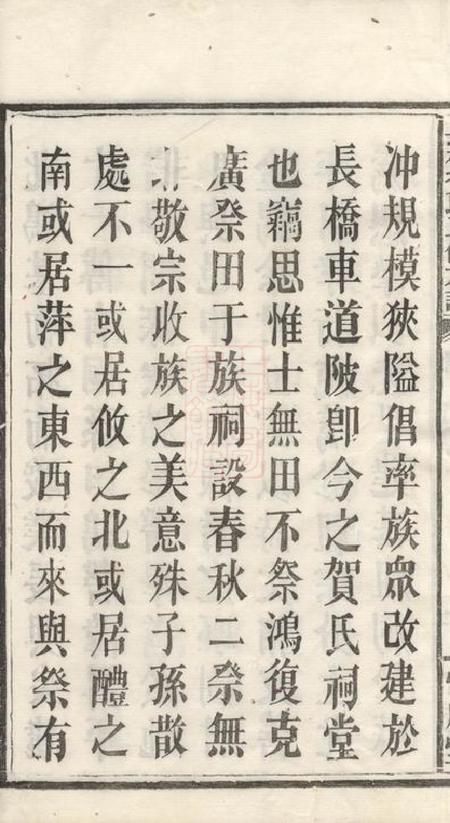 冲規模狹隘倡率族眾改建於
長橋車道陂卽今之賀氏祠堂
也竊思惟士無田不祭鴻復克
廣祭田于族祠設春秋二祭無
非敬宗收族之美意殊子孫散
處不一或居攸之北或居醴之
南或居萍之東西而來與祭有